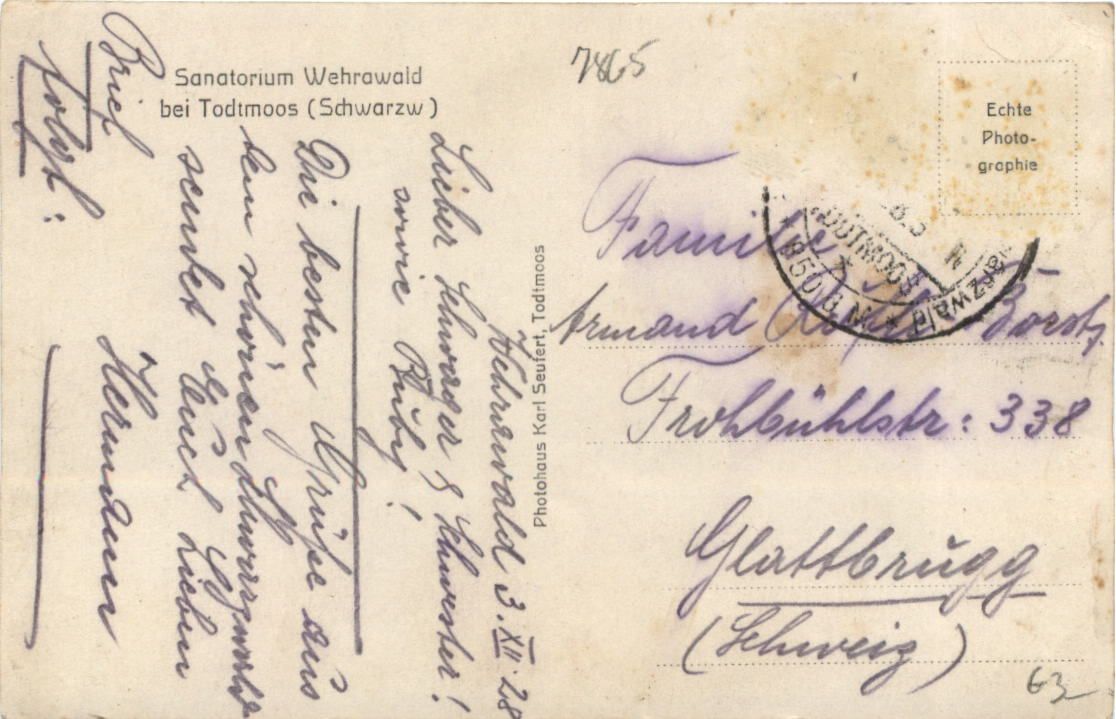 Sanatorium Wehrawald
bei Todtmoos (Schwarzw)
Wehrawald 3. XII 28
Lieber Schwager & Schwester!
sowie Buby!
Die besten Grüße aus
dem schönen Schwarzwald
sendet Euch Lieben
Hermann
Brief
folgt:
Photohaus Karl Seufert, Todtmoos
7865
Echte
Photo-
graphie
TODTMOOS
Familie
Armand
Frohbühlstr: 338
Glattbrugg
(Schweiz)
63